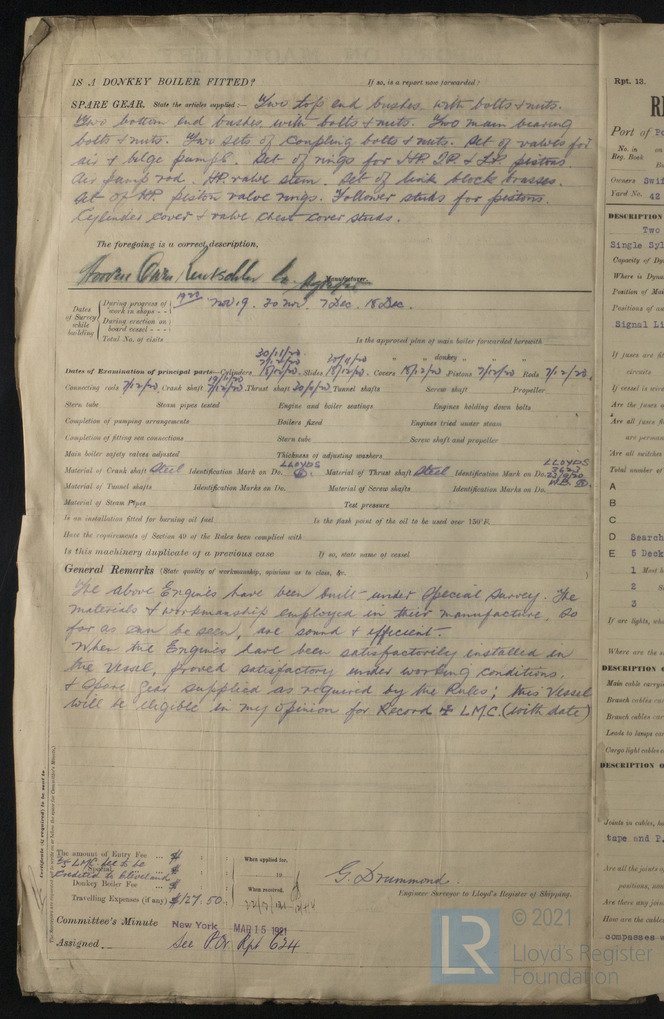 IS A DONKEY BOILER FITTED? If so, is a report now forwarded?
SPARE GEAR. State the articles supplied:— Two top end bushes with bolts & nuts.
Two bottom end bushes with bolts & nuts. Two main bearing
bolts & nuts. Two sets of coupling bolts & nuts. Set of valves for
air & bilge pumps. Set of rings for HP. IP. & LP. pistons
Air pump rod. HP. valve stem. Set of link block brasses.
Set of HP. piston valve rings. Follower studs for pistons.
Cylinder cover & valve chest cover studs.
The foregoing is a correct description,
Hooven Owens Rentschler Co. Manufacturer.
Dates of Survey while building
During progress of work in shops - - 1920 Nov. 9. 30 Nov. 7 Dec. 18 Dec.
During erection on board vessel - - -
Total No. of visits
Is the approved plan of main boiler forwarded herewith
" " donkey " "
Dates of Examination of principal parts—Cylinders 30/11/20 18/12/20 Slides 18/12/20 Covers 18/12/20 Pistons 7/12/20 Rods 7/12/20.
Connecting rods 7/12/20 Crank shaft 7/12/20 Thrust shaft Tunnel shafts Screw shaft Propeller
Stern tube Steam pipes tested Engine and boiler seatings Engines holding down bolts
Completion of pumping arrangements Boilers fixed Engines tried under steam
Completion of fitting sea connections Stern tube Screw shaft and propeller
Main boiler safety valves adjusted Thickness of adjusting washers
Material of Crank shaft Steel Identification Mark on Do. LLOYDS Material of Thrust shaft Steel Identification Mark on Do. LLOYDS
Material of Tunnel shafts Identification Marks on Do. Material of Screw shafts Identification Marks on Do.
Material of Steam Pipes Test pressure
Is an installation fitted for burning oil fuel Is the flash point of the oil to be used over 150°F.
Have the requirements of Section 49 of the Rules been complied with
Is this machinery duplicate of a previous case If so, state name of vessel
General Remarks (State quality of workmanship, opinions as to class, &c.
The above Engines have been built under Special Survey. The
materials & workmanship employed in their manufacture, so
far as can be seen, are sound & efficient.
When the Engines have been satisfactorily installed in
the vessel, proved satisfactory under working conditions,
& Spare Gear supplied as required by the Rules; this Vessel
will be eligible in my opinion for Record ✠ L.M.C. (with date)
Certificate (if required) to be sent to
The amount of Entry Fee ... £ : : When applied for,
LMC fee to be Special
credited to Cleveland
Donkey Boiler Fee ... £ When received,
Travelling Expenses (if any) £ $127.50
G. Drummond.
Engineer Surveyor to Lloyd's Register of Shipping.
Committee's Minute New York MAR 15 1921
Assigned See P.Or. Rpt 624
© 2021
Lloyd's Register
Foundation
LR
Rpt. 13.
Port of
No. in Reg. Book
Owners Swif
Yard No. 42
DESCRIPTION
Two
Single Syl
Capacity of Dy
Where is Dynam
Position of Mai
Positions of au
Signal Li
If fuses are fi
circuits
If vessel is wire
Are the fuses o
Are all fuses fi
are perman
Are all switches
Total number of
A
B
C
D Search
E 5 Deck
1 Mast h
2 S
3
If arc lights, wh
Where are the s
DESCRIPTION O
Main cable carryin
Branch cables carr
Branch cables carr
Leads to lamps car
Cargo light cables c
DESCRIPTION O
Joints in cables, ho
tape and P.
Are all the joints of
positions, no
Are there any joint
How are the cables
compasses w